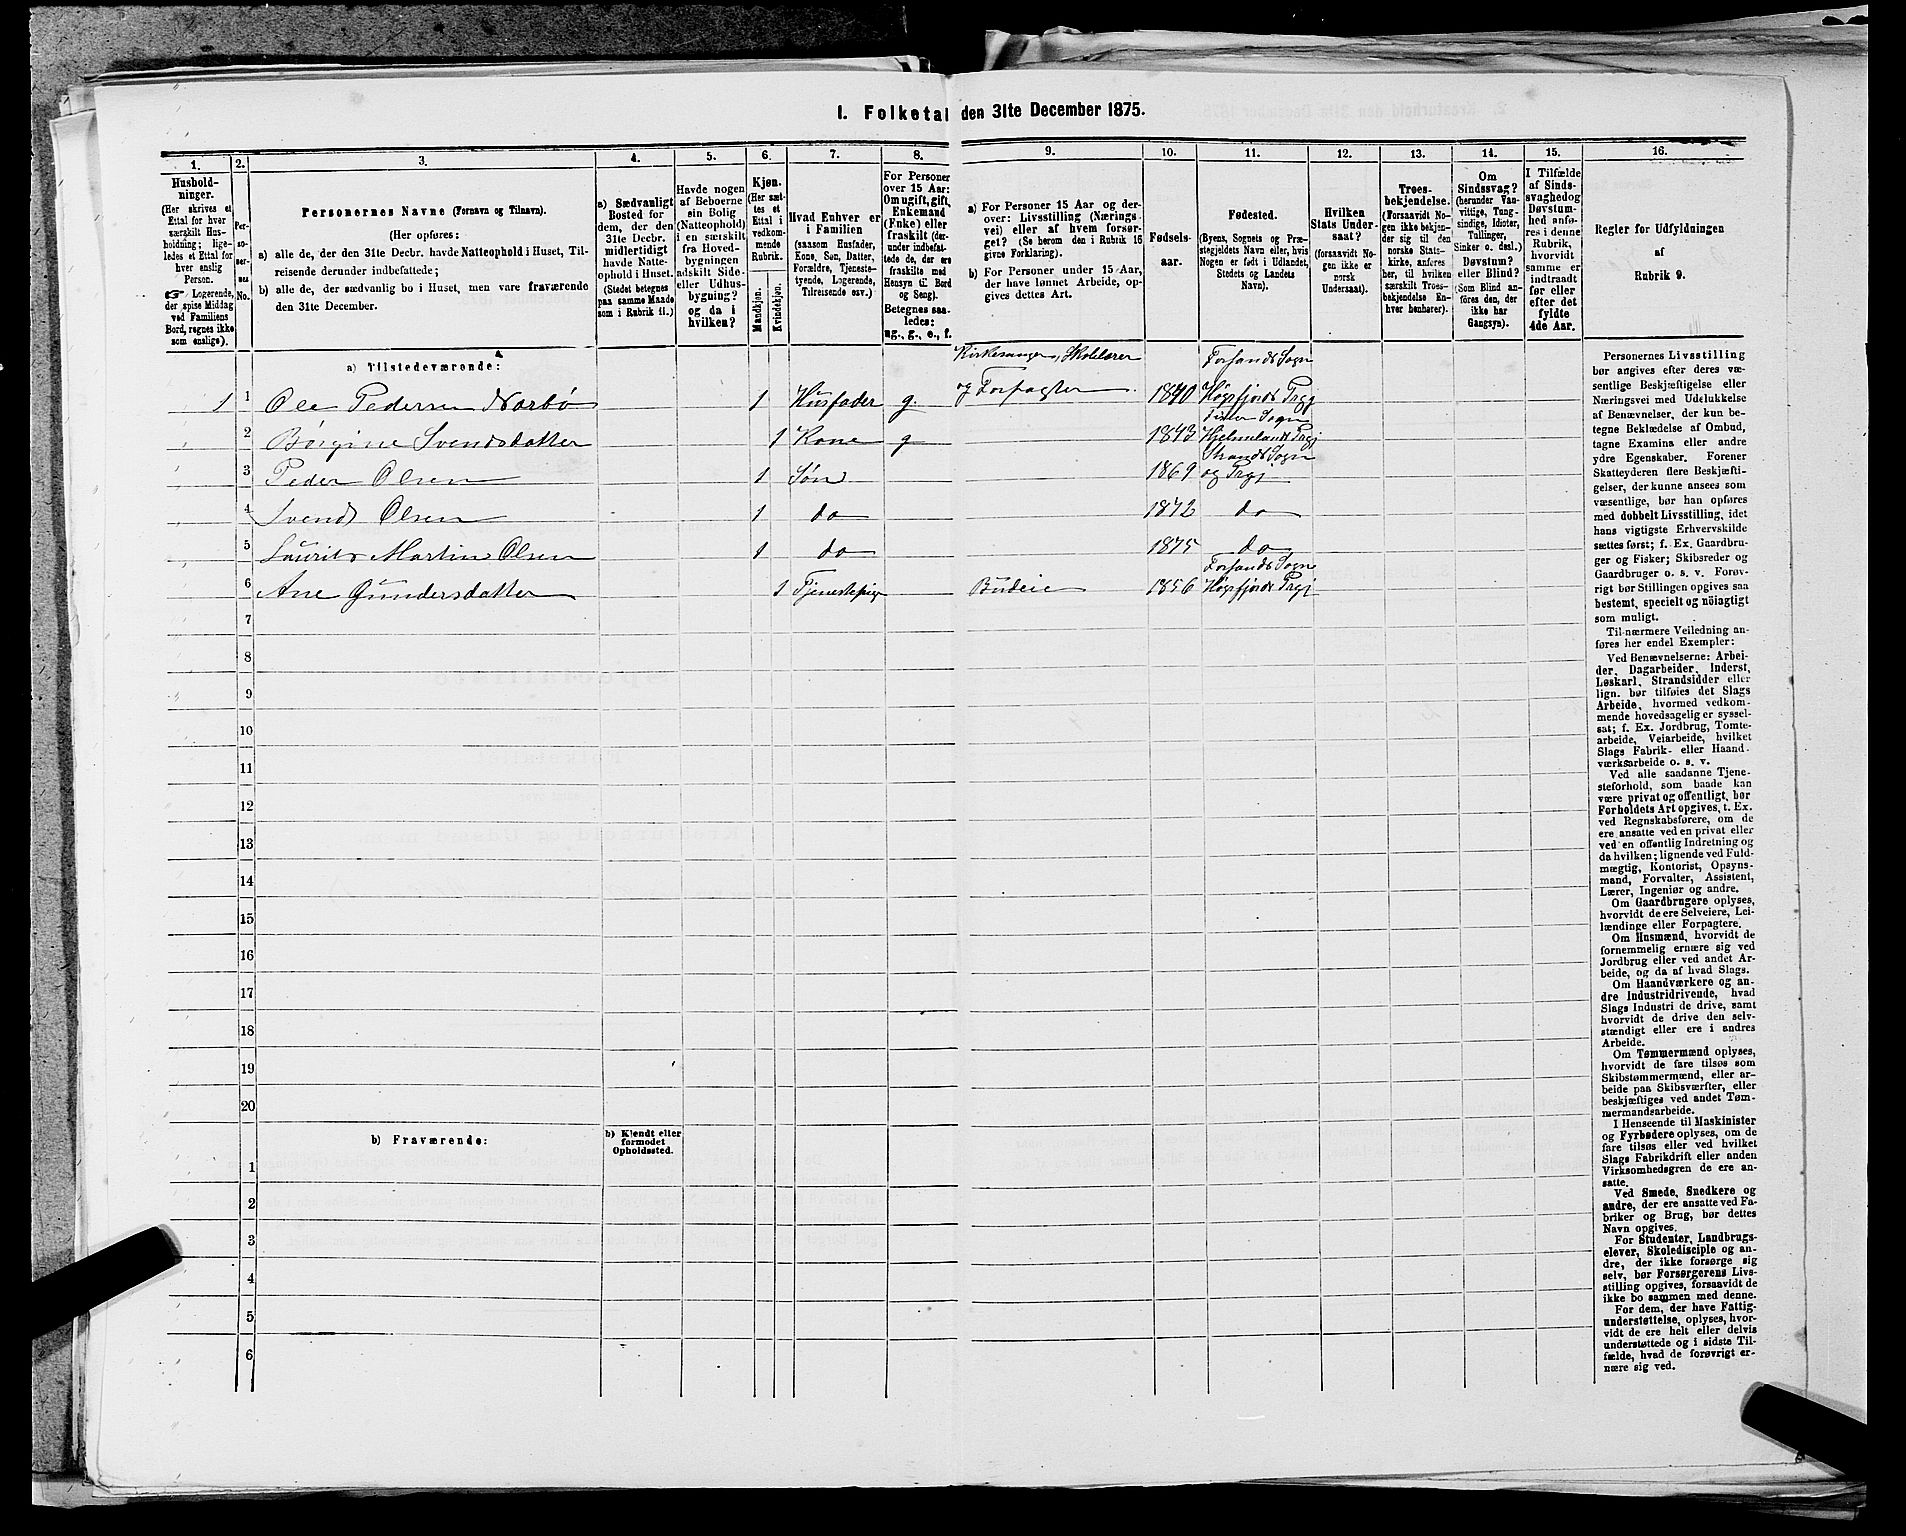 I. Folketal den 31te December 1875.
1. 2. 3. 4. 5. 6. 7. 8. 9. 10. 11. 12. 13. 14. 15. 16.
Hushold-
ninger.
(Her skrives et
Ettal for hver
særskilt Hus-
holdning; lige-
ledes et Ettal for
hver enslig
Person.
☞ Logerende,
der spise Middag
ved Familiens
Bord, regnes ikke
som enslige).
Per-
so-
ner-
nes
No.
Personernes Navne (Fornavn og Tilnavn).
(Her opføres:
a) alle de, der den 31te Decbr. havde Natteophold i Huset, Til-
reisende derunder indbefattede;
b) alle de, der sædvanlig bo i Huset, men vare fraværende
den 31te December.
a) Sædvanligt
Bosted for
dem, der den
31te Decbr.
midlertidigt
havde Natte-
ophold i Huset.
(Stedet betegnes
paa samme Maade
som i Rubrik 11.)
Havde nogen
af Beboerne
sin Bolig
(Natteophold)
i en særskilt
fra Hoved-
bygningen
adskilt Side-
eller Udhus-
bygning?
og da i
hvilken?
Kjøn.
(Her sæt-
tes et
Ettal i
vedkom-
mende
Rubrik.
Mandkjøn.
Kvindekjøn.
Hvad Enhver er
i Familien
(saasom Husfader,
Kone, Søn, Datter,
Forældre, Tjeneste-
tyende, Logerende,
Tilreisende osv.)
For Personer
over 15 Aar:
Om ugift, gift,
Enkemand
(Enke) eller
fraskilt (der-
under indbefat-
tede de, der ere
fraskilte med
Hensyn til Bord
og Seng).
Betegnes saa-
ledes:
ug., g., e., f.
a) For Personer 15 Aar og der-
over: Livsstilling (Nærings-
vei) eller af hvem forsør-
get? (Se herom den i Rubrik 16
givne Forklaring).
b) For Personer under 15 Aar,
der have lønnet Arbeide, op-
gives dettes Art.
Fødsels-
aar.
Fødested.
(Byens, Sognets og Præ-
stegjeldets Navn eller, hvis
Nogen er født i Udlandet,
Stedets og Landets
Navn).
Hvilken
Stats Under-
saat?
(forsaavidt No-
gen ikke er
norsk
Undersaat).
Troes-
bekjendelse.
(Forsaavidt No-
gen ikke bekjen-
der sig til den
norske Stats-
kirke, anføres
her, til hvilken
særskilt Troes-
bekjendelse En-
hver henhører).
Om
Sindssvag?
(herunder Van-
vittige, Tung-
sindige, Idioter,
Tullinger,
Sinker o. desl.)
Døvstum?
eller Blind?
(Som Blind an-
føres den, der
ikke har
Gangsyn).
I Tilfælde
af Sinds-
svaghed og
Døvstum-
hed anfø-
res i denne
Rubrik,
hvorvidt
samme er
indtraadt
før eller
efter det
fyldte
4de Aar.
Regler for Udfyldningen
af
Rubrik 9.
a) Tilstedeværende:
Kirkesanger, Skolelærer Forsands Sogn
1 1 Ole Pedersen Narbø 1 Husfader g. og Forpagter. 1840 Høgsfjords Prgj
Sogn
2 Børgine Svendsdatter 1 Kone g 1843 Hjelmelands Prgj
Strands Sogn
3 Peder Olsen 1 Søn 1869 og Prgj
4 Svend Olsen 1 do 1872 do
5 Laurits Martin Olsen 1 do 1875 do
Forsands Sogn
6 Ane Gundersdatter 1 Tjenestepige Budeie 1856 Høgsfjords Prgj
7
8
9
10
11
12
13
14
15
16
17
18
19
20
b) Fraværende:
b) Kjendt eller
formodet
Opholdssted.
1
2
3
4
5
6
Personernes Livsstilling
bør angives efter deres væ-
sentlige Beskjæftigelse eller
Næringsvei med Udelukkelse
af Benævnelser, der kun be-
tegne Beklædelse af Ombud,
tagne Examina eller andre
ydre Egenskaber. Forener
Skatteyderen flere Beskjæfti-
gelser, der kunne ansees som
væsentlige, bør han opføres
med dobbelt Livsstilling, idet
hans vigtigste Erhvervskilde
sættes først; f. Ex. Gaardbru-
ger og Fisker; Skibsreder og
Gaardbruger o. s. v. Forøv-
rigt bør Stillingen opgives saa
bestemt, specielt og nöiagtigt
som muligt.
Til nærmere Veiledning an-
føres her endel Exempler:
Ved Benævnelserne: Arbei-
der, Dagarbeider, Inderst,
Løskarl, Strandsidder eller
lign. bør tilføies det Slags
Arbeide, hvormed vedkom-
mende hovedsagelig er syssel-
sat; f. Ex. Jordbrug, Tomte-
arbeide, Veiarbeide, hvilket
Slags Fabrik- eller Haand-
værksarbeide o. s. v.
Ved alle saadanne Tjene-
steforhold, som baade kan
være privat og offentligt, bør
Forholdets Art opgives, t. Ex.
ved Regnskabsførere, om de
ere ansatte ved en privat eller
ved en offentlig Indretning og
da hvilken; lignende ved Fuld-
mægtig, Kontorist, Opsyns-
mand, Forvalter, Assistent,
Lærer, Ingeniør og andre.
Om Gaardbrugere oplyses,
hvorvidt de ere Selveiere, Lei-
lændinge eller Forpagtere.
Om Husmænd, hvorvidt de
fornemmelig ernære sig ved
Jordbrug eller ved andet Ar-
beide, og da af hvad Slags.
Om Haandværkere og an-
dre Industridrivende, hvad
Slags Industri de drive, samt
hvorvidt de drive den selv-
stændigt eller ere i andres
Arbeide.
Om Tømmermænd oplyses,
hvorvidt de fare tilsøs som
Skibstømmermænd, eller ar-
beide paa Skibsværfter, eller
beskjæftiges ved andet Tøm-
mermandsarbeide.
I Henseende til Maskinister
og Fyrbødere oplyses, om de
fare tilsøs eller ved hvilket
Slags Fabrikdrift eller anden
Virksomhedsgren de ere an-
satte.
Ved Smede, Snedkere og
andre, der ere ansatte ved Fa-
briker og Brug, bør dettes
Navn opgives.
For Studenter, Landbrugs-
elever, Skoledisciple og an-
dre, der ikke forsørge sig
selv, bør Forsørgerens Livs-
stilling opgives, forsaavidt de
ikke bo sammen med denne.
For dem, der have Fattig-
understøttelse, oplyses, hvor-
vidt de ere helt eller delvis
understøttede og i sidste Til-
fælde, hvad de forøvrigt er-
nære sig ved.